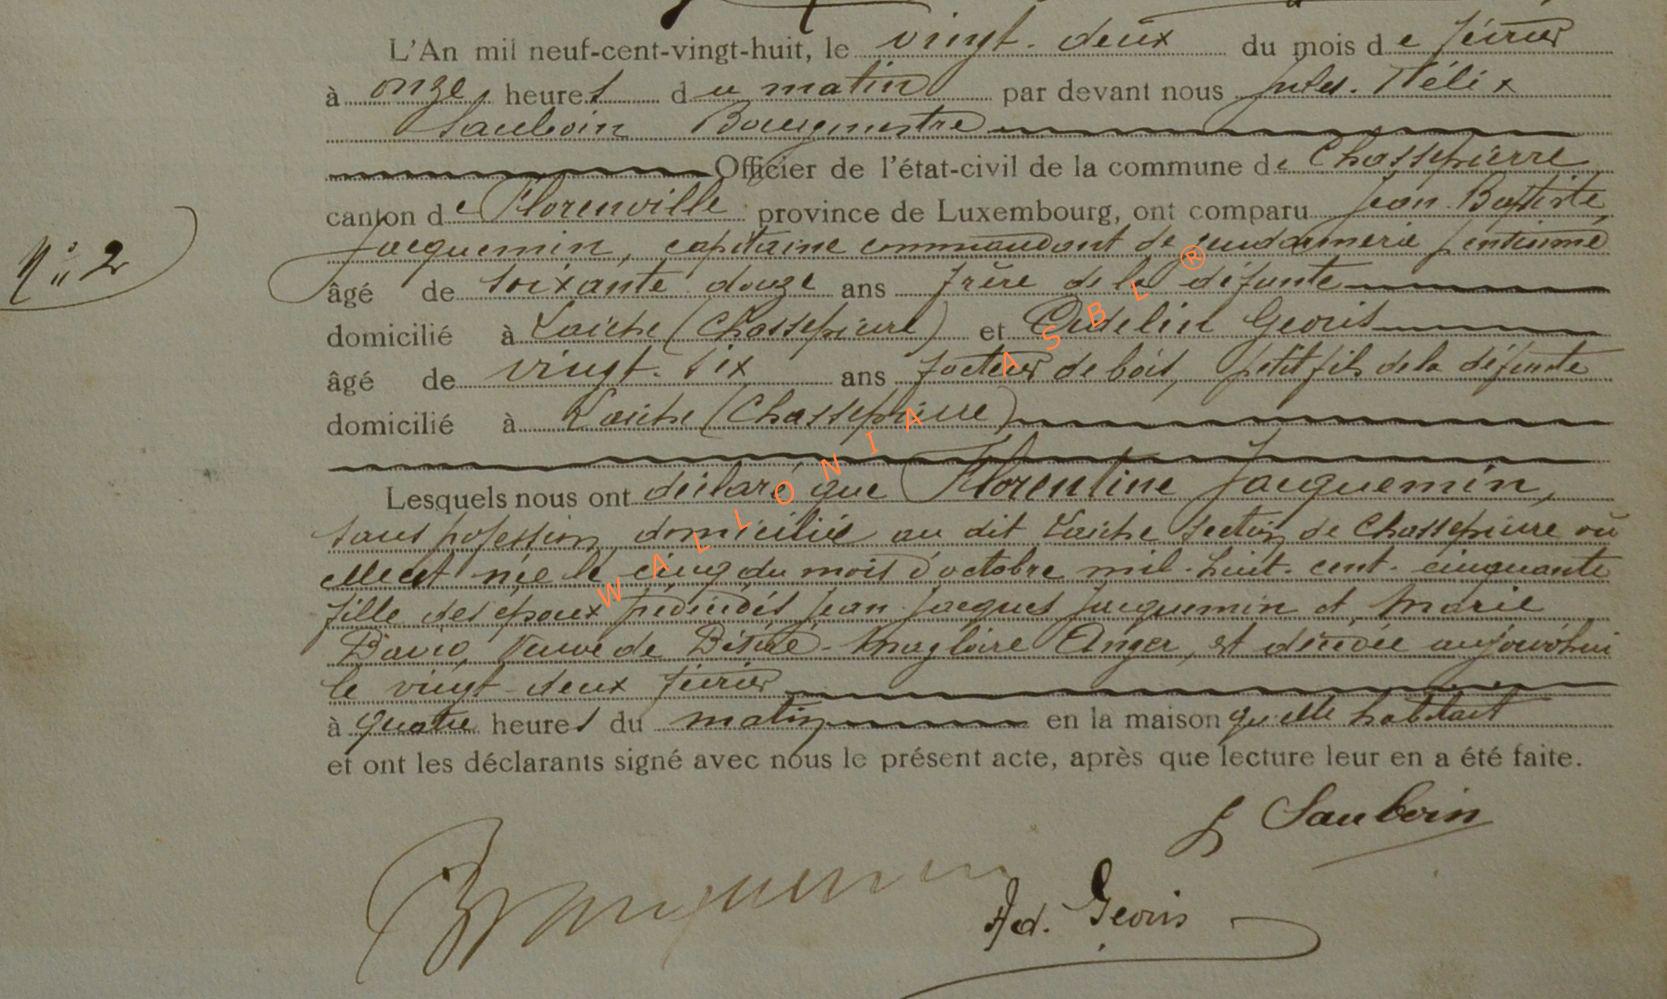 L'An mil neuf-cent-vingt-huit, le vingt-deux du mois de février
à onze heures du matin par devant nous Jules-Félix
Sauboin Bourgmestre
Officier de l'état-civil de la commune de Chassepierre
canton de Florenville province de Luxembourg, ont comparu Jean-Baptiste
Jacquemin, capitaine commandant de gendarmerie pensionné
N° 2
âgé de soixante douze ans frère de la défunte
domicilié à Laiche (Chassepierre) et Odelin Georis
âgé de vingt-six ans facteur de bois, petit fils de la défunte
domicilié à Laiche (Chassepierre)
Lesquels nous ont déclaré que Florentine Jacquemin,
sans profession domiciliée au dit Laiche section de Chassepierre où
elle est née le cinq du mois d'octobre mil-huit-cent-cinquante
fille des époux prédécédés Jean-Jacques Jacquemin et Marie
David, veuve de Désiré-Magloire Anger, est décédée aujourd'hui
le vingt-deux février
à quatre heures du matin en la maison qu'elle habitait
et ont les déclarants signé avec nous le présent acte, après que lecture leur en a été faite.
J Sauboin
Jacquemin
Od. Georis
WALLONIA ASBL ®